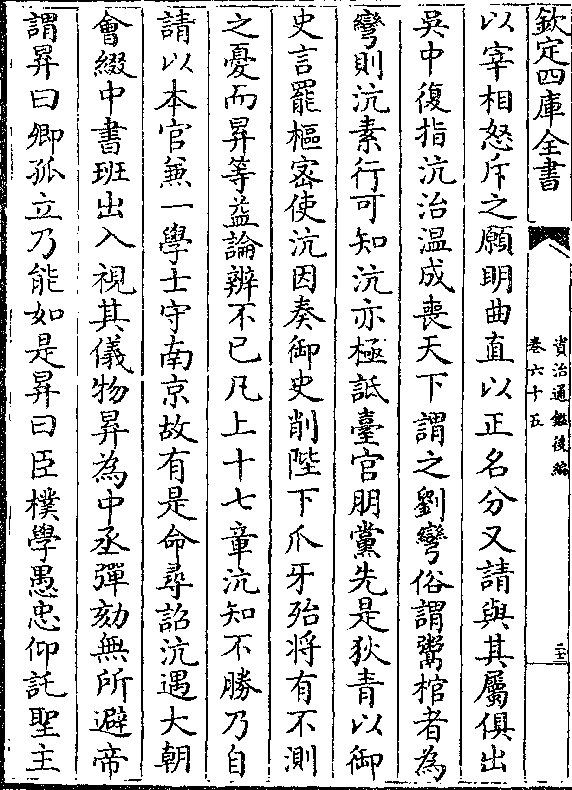 欽定四庫全書
資治通鑑後編
卷六十五
以宰相怒斥之願明曲直以正名分又請與其屬俱出
吳中復指沆治温成喪天下謂之劉彎俗謂鬻棺者為
彎則沆素行可知沆亦極詆臺官朋黨先是狄青以御
史言罷樞宻使沆因奏御史削陛下爪牙殆將有不測
之憂而昇等益論辨不已凡上十七章沆知不勝乃自
請以本官兼一學士守南京故有是命尋詔沆遇大朝
會綴中書班出入視其儀物昇為中丞彈劾無所避帝
謂昇曰卿孤立乃能如是昇曰臣樸學愚忠仰託聖主